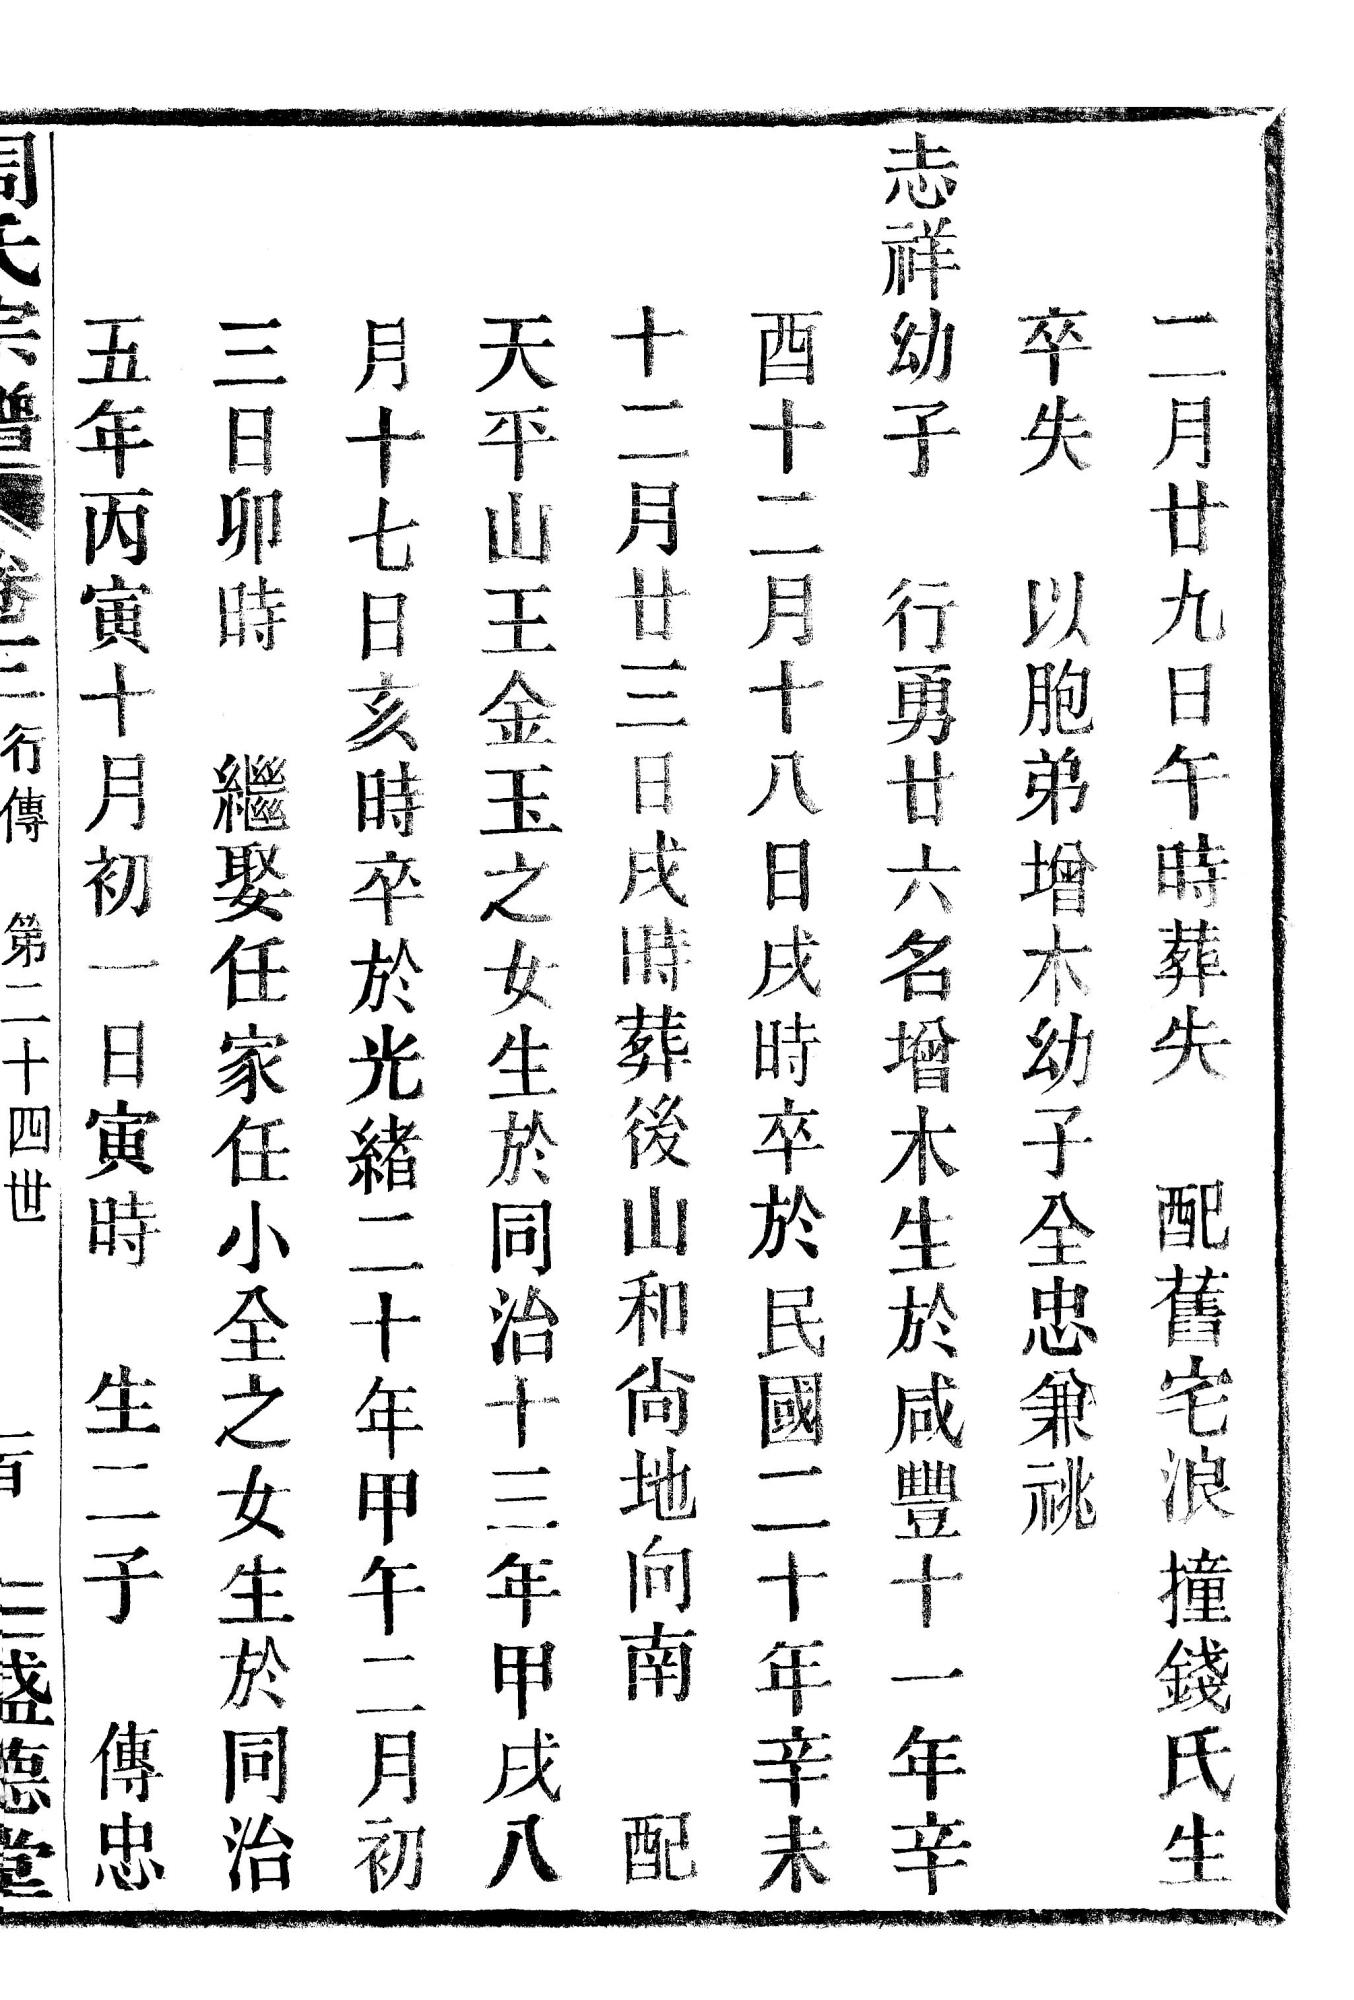 二月廿九日午時葬失　配舊宅浪撞錢氏生
卒失　以胞弟增木幼子全忠兼祧
志祥幼子　行勇廿六名增木生於咸豐十一年辛
酉十二月十八日戌時卒於民國二十年辛未
十二月廿三日戌時葬後山和尙地向南　配
天平山王金玉之女生於同治十三年甲戌八
月十七日亥時卒於光緒二十年甲午二月初
三日卯時　繼娶任家任小全之女生於同治
五年丙寅十月初一日寅時　生二子　傳忠
周氏宗譜　卷二　行傳　第二十四世　盛德堂